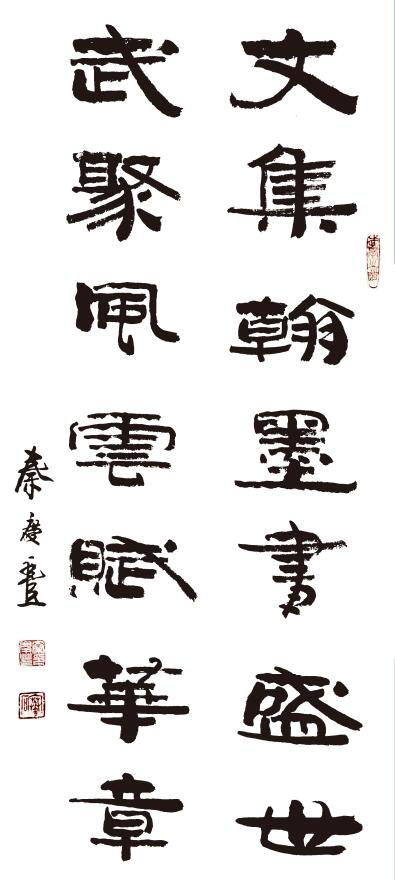 文集翰墨書盛世
武聚風雲賦華章
秦慶豐